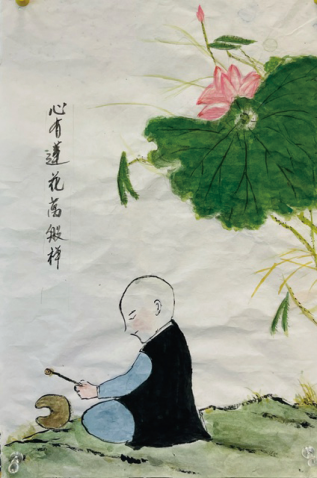 心有蓮花萬般样